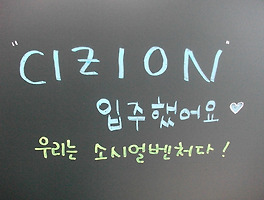 "CIZION"
입주했어요 ♡
우리는 소시얼벤처다!